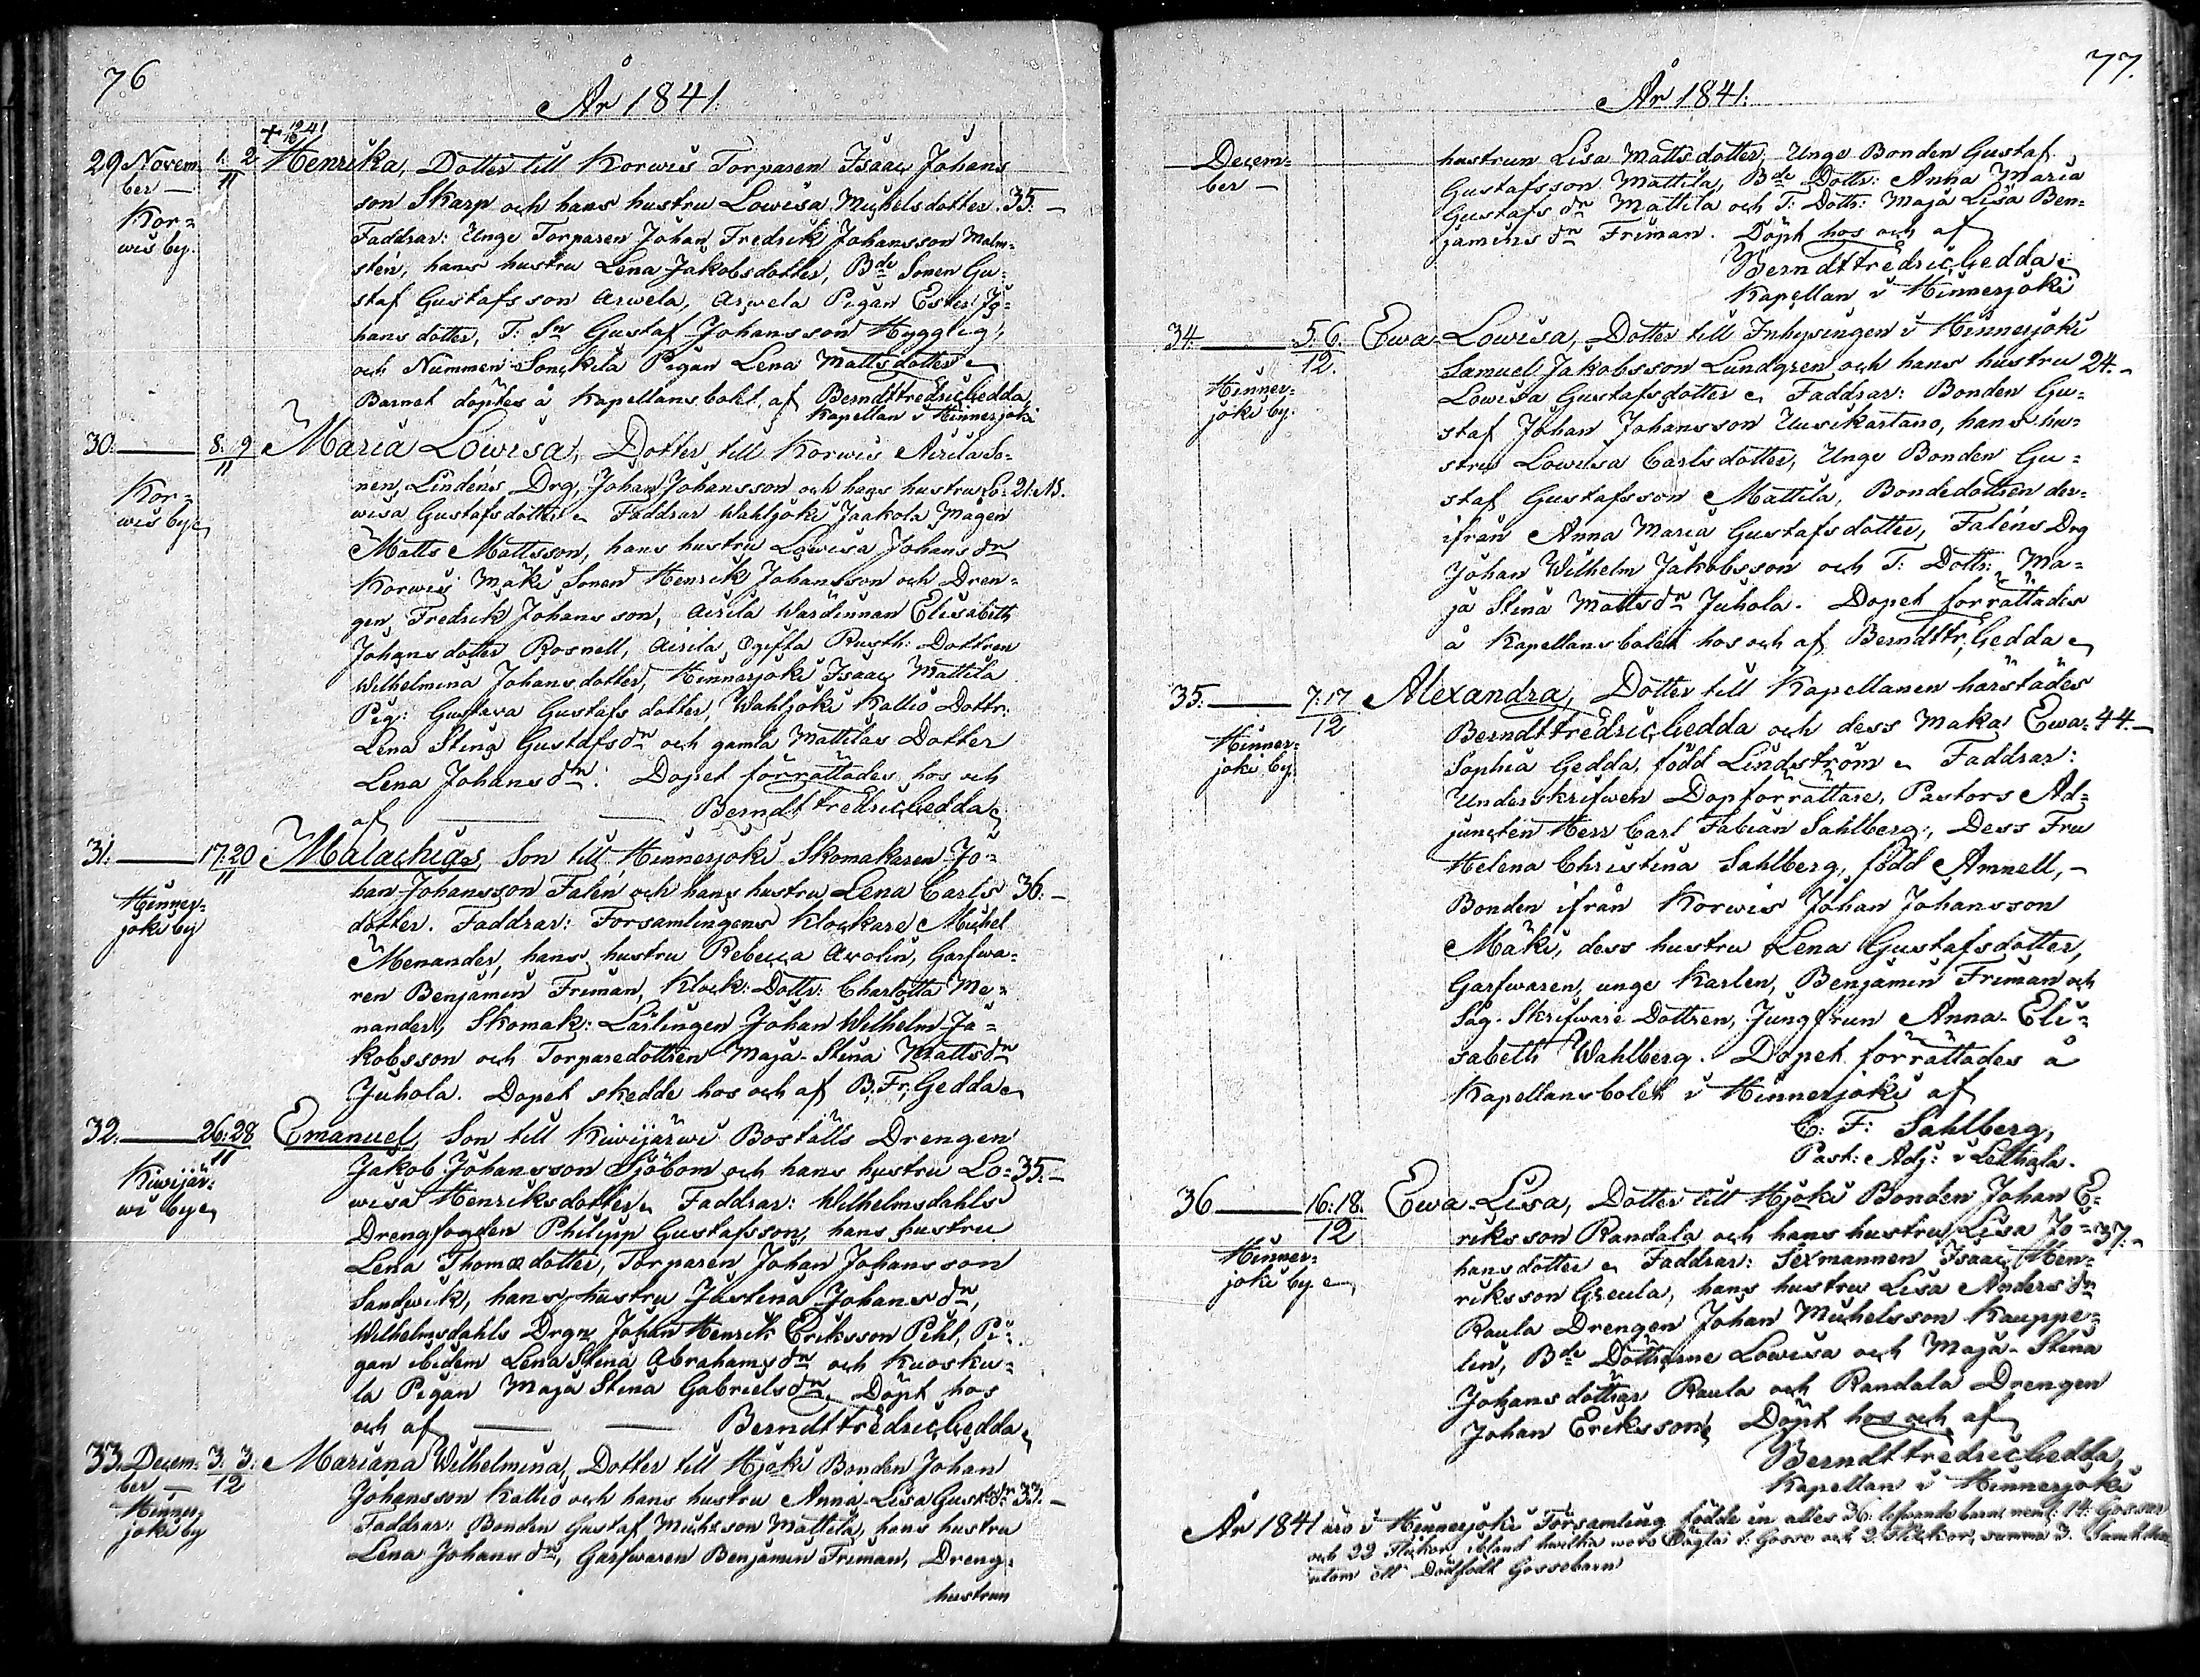 76
År 1841.
+ 12/10 41
29 Novem- 1. 2/11 Henrika, Dotter till Korwis Torparen Isaac Johans
ber — son Skarp och hans hustru Lowisa Michelsdotter. 35. —
Kor= Faddrar: Unge Torparen Johan Fredrik Johansson Malm=
wis by. stén, hans hustru Lena Jakobsdotter, Bde Sonen Gu=
staf Gustafsson Arwela, Arwela Pigan Ester Jo=
hansdotter, T: Sn Gustaf Johansson Hygglig,
och Nummen-Sonckila Pigan Lena Mattsdotter
Barnet döptes å Kapellansbolet, af Berndt Fredric Gedda,
Kapellan i Hinnerjoki
30. — 8. 9/11 Maria Lowisa, Dotter till Korwis Airila So=
Kor= nen, Lindéns Drg, Johan Johansson och hans hustru Lo= 21. 
wis by wisa Gustafsdotter Faddrar Wahljoki Jaakola Mågen
Matts Mattsson, hans hustru Lowisa Johans dn
Korwis Mäki Sonen Henrik Johansson och Dren=
gen Fredrik Johansson, Airila Wärdinnan Elisabeth
Johansdotter Rosnell, Airila, Ogifta Rusth: Dottren
Wilhelmina Johansdotter, Hinnerjoki Isaac Mattila
Pig: Gustava Gustafsdotter, Wahljoki Kallio Dottr:
Lena Stina Gustafs dn och gamla Mattilas Dotter
Lena Johans dn. Dopet förrättades hos och
af — — Berndt Fredric Gedda
31. — 17. 20/11 Malachias, Son till Hinnerjoki Skomakaren Jo=
han Johansson Falén och hans hustru Lena Carls 36. —
Hinner= dotter. Faddrar: Församlingens Klockare Michel
joki by Menander, hans hustru Rebecca Arolin, Garfwa=
ren Benjamin Friman, Klock: Dottr: Charlotta Me=
nander, Skomak: Lärlingen Johan Wilhelm Ja=
kobsson och Torparedottren Maja-Stina Matts dn
Juhola. Dopet skedde hos och af B. Fr. Gedda
32. — 26. 28/11 Emanuel, Son till Kiwijärwi Boställs Drengen
Kiwijär= Jakob Johansson Sjöbom och hans hustru Lo= 35. —
wi by wisa Henriksdotter Faddrar: Wilhelmsdahls
Drengfogden Philipp Gustafsson, hans hustru
Lena Thomædotter, Torparen Johan Johansson
Sandwik, hans hustru Justina Johans dn,
Wilhelmsdahls Drgn Johan Henrik Eriksson Pihl, Pi=
gan ibidem Lena Stina Abrahams dn och Kuosku=
la Pigan Maja Stina Gabriels dn Döpt hos
och af — — Berndt Fredric Gedda
33. Decem- 3. 3./12 Mariana Wilhelmina, Dotter till Hjoki Bonden Johan
ber — Johansson Kallio och hans hustru Anna-Lisa Gustafs dn 33. —
Hinner= Faddrar: Bonden Gustaf Michsson Mattila, hans hustru
joki by Lena Johans dn, Garfwaren Benjamin Friman, Dreng=
hustrun
77.
År 1841.
Decem= hustrun Lisa Mattsdotter, Unge Bonden Gustaf
ber — Gustafsson Mattila, Bde Dottr: Anna Maria
Gustafs dn Mattila och T: Dottr: Maja Lisa Ben=
jamins dn Friman. Döpt hos och af
Berndt Fredric Gedda
Kapellan i Hinnerjoki
34. — 5. 6./12. Ewa Lowisa, Dotter till Inhysingen i Hinnerjoki
Hinner= Samuel Jakobsson Lundgren och hans hustru 24. —
joki by. Lowisa Gustafsdotter Faddrar: Bonden Gu=
staf Johan Johansson Uusikartano, hans hu=
stru Lowisa Carlsdotter, Unge Bonden Gu=
staf Gustafsson Mattila, Bondedottren der=
ifrån Anna Maria Gustafsdotter, Faléns Drg
Johan Wilhelm Jakobsson och T: Dottr: Ma=
ja Stina Matts dn Juhola. Dopet förrättades
å Kapellansbolet hos och af Berndt Fr. Gedda
35. — 7. 17/12 Alexandra, Dotter till Kapellanen härstädes
Hinner= Berndt Fredric Gedda och dess Maka Ewa= 44. —
joki by. Sophia Gedda, född Lindström Faddrar:
Underskrifwen Dopförrättare, Pastors Ad=
juncten Herr Carl Fabian Sahlberg, Dess Fru
Helena Christina Sahlberg, född Amnell, —
Bonden ifrån Korwis Johan Johansson
Mäki, dess hustru Lena Gustafsdotter,
Garfwaren, unge Karlen, Benjamin Friman och
Såg-Skrifware Dottren, Jungfrun Anna-Eli=
sabeth Wahlberg. Dopet förrättades å
Kapellansbolet i Hinnerjoki af
C. F. Sahlberg,
Past: Adj: i Letthala.
36 — 16. 18./12 Ewa-Lisa, Dotter till Hjoki Bonden Johan E=
Hinner= riksson Randala och hans hustru Lisa Jo= 37. —
joki by hansdotter Faddrar: Sexmannen Isaac Hen=
riksson Greula, hans hustru Lisa Anders dn
Raula Drengen Johan Michelsson Kauppe=
lin, Bde Döttrarne Lowisa och Maja-Stina
Johansdöttrar Raula och Randala Drengen
Johan Eriksson Döpt hos och af
Berndt Fredric Gedda,
Kapellan i Hinnerjoki
År 1841 äro i Hinnerjoki Församling födde in alles 36 lefwande barn neml: 14 Gossar
och 22 Flickor, ibland hwilka woro Oägta 1. Gosse och 2. Flickor, summa 3.
utom ett Dödfödt Gossebarn